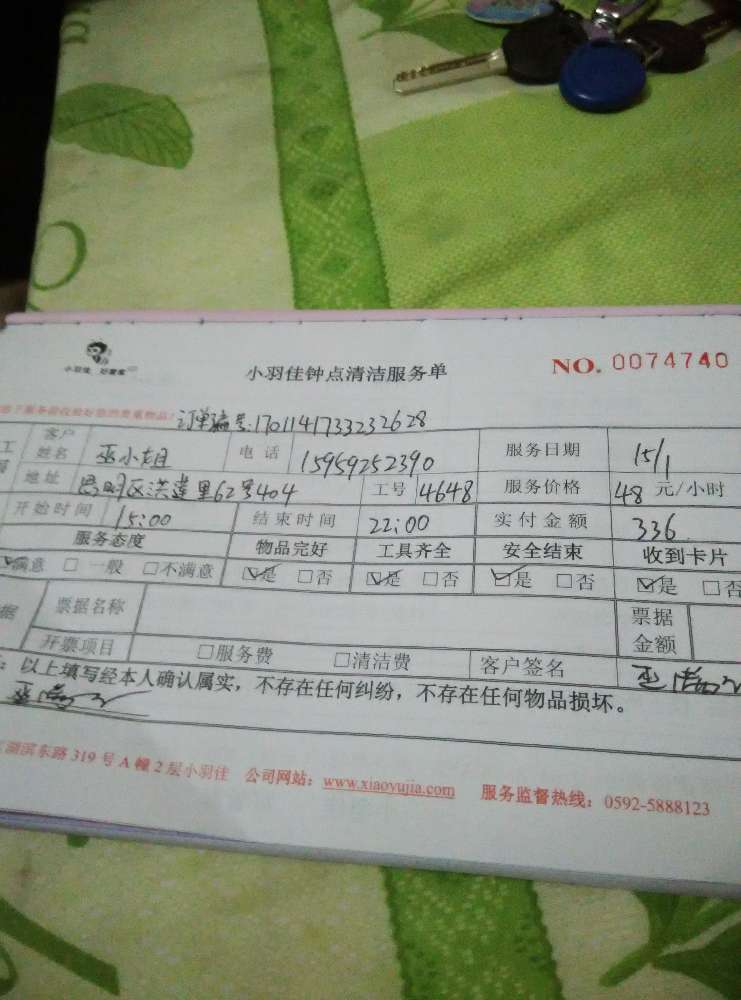 小羽佳 好管家
小羽佳钟点清洁服务单
NO. 0074740
订单编号:1701141733232628
客户姓名 巫小姐 电话 15959252390 服务日期 15/1
地址 明区洪莲里62号404 工号 4648 服务价格 48 元/小时
开始时间 15:00 结束时间 22:00 实付金额 336
服务态度 物品完好 工具齐全 安全结束 收到卡片
☑满意 □一般 □不满意 ☑是 □否 ☑是 □否 ☑是 □否 ☑是 □否
票据名称 票据金额
开票项目 □服务费 □清洁费 客户签名 巫
:以上填写经本人确认属实,不存在任何纠纷,不存在任何物品损坏。
巫
湖滨东路319号A幢2层小羽佳 公司网站:www.xiaoyujia.com 服务监督热线:0592-5888123